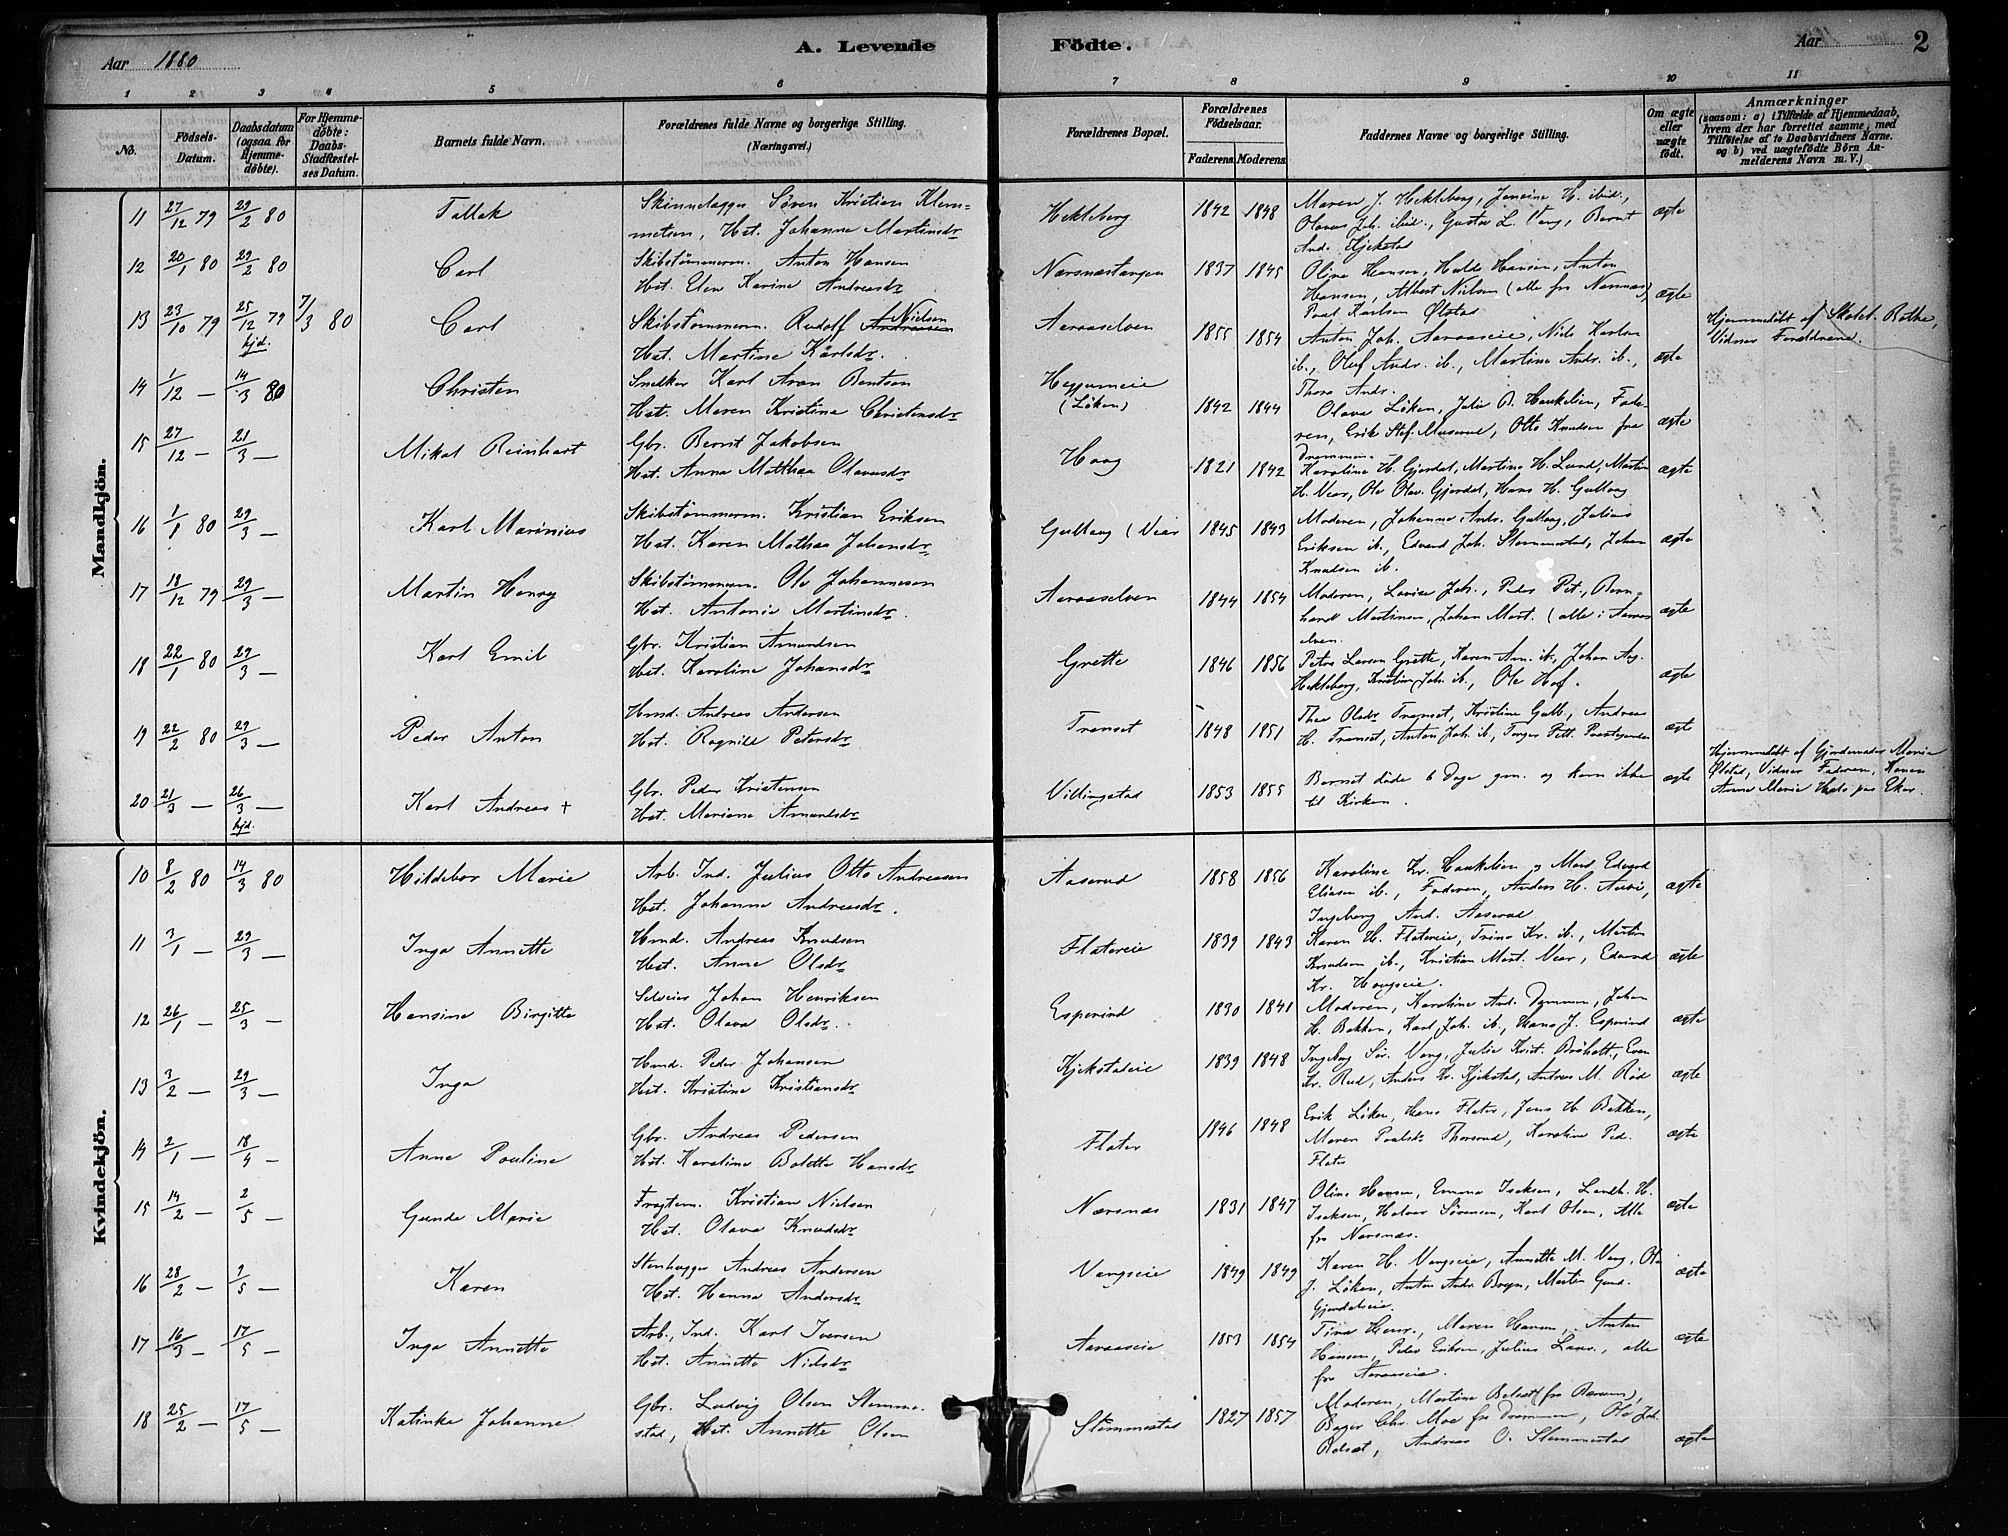 Aar 1880
A. Levende
Födte.
Aar
2
1 2 3 4 5 6 7 8 9 10 11
No.
Födsels-Datum.
Daabsdatum (ogsaa for Hjemme-döbte).
For Hjemme-döbte: Daabs-Stadfæstel-ses Datum.
Barnets fulde Navn.
Forældrenes fulde Navne og borgerlige Stilling.
(Næringsvei.)
Forældrenes Bopæl.
Forældrenes Födselsaar.
Faderens. Moderens.
Faddernes Navne og borgerlige Stilling.
Om ægte eller uægte födt.
Anmærkninger
(saasom: a) i Tilfælde af Hjemmedaab,
hvem der har forrettet samme, med
Tilföielse af to Daabsvidners Navne,
og b) ved uægtefödte Börn An-
melderens Navn m. V.)
Mandkjön.
11 27/12 79 29/2 80 Tallak Skinnelægger Sören Kristian Klem-
metsen, Hst. Johanne Martinsdr. Hekleberg 1842 1848 Maren J. Hekleberg, Jensine H. ibid.,
Olaves Joh. ibid., Gustav L. Vang, Bernt
And. Kjekstad ægte
12 20/1 80 29/2 80 Carl Skibstömmerm. Anton Hansen
Hst. Elen Karine Andreasdr. Nærsnæstangen 1837 1845 Oline Hansen, Hulda Hansen, Anton
Hansen, Albert Nielsen (alle fra Nærsnæs)
Poul Karlsen Ølstad ægte
13 23/10 79 25/12 79 hjd. 7/3 80 Carl Skibstömmerm. Rudolf Andreasen Nielsen
Hst. Martine Karlsdr. Aaraaselven 1855 1854 Anton Joh. Aaraaseie, Niels Karlsen
ib., Oluf Andr. ib., Martine Andr. ib.,
Thora Andr. ægte Hjemmedöbt af Skolel. Rothe,
Vidner Forældrene.
14 1/12 — 14/3 80 Christen Snedker Karl Aron Bentsen
Hst. Maren Kristine Christensdr. Heggumeie
(Löken) 1842 1844 Olava Löken, Julie B. Haukelien, Fade-
ren, Erik Stef. Muserud, Otto Knudsen fra
Drammen ægte
15 27/12 — 21/3 — Mikal Reinhart Gbr. Bernt Jakobsen
Hst. Anne Matthea Olavusdr. Haag 1821 1842 Karoline H. Gjerdal, Martine H. Lund, Martin
H. Nær, Ole Olav. Gjerdal, Hans H. Gullaug ægte
16 1/1 80 29/3 — Karl Marinius Skibstömmerm. Kristian Eriksen
Hst. Karen Mathea Johansdr. Gullaug (Nær 1845 1843 Moderen, Johanne Andr. Gullaug, Julius
Eriksen ib., Edvard Joh. Slemmestad, Johan
Knudsen ib. ægte
17 18/12 79 29/3 — Martin Henry Skibstömmerm. Ole Johannesen
Hst. Antonie Martinsdr. Aaraaselven 1844 1854 Moderen, Lovise Joh., Peder Pet., Bern-
hard Martinsen, Johan Mart. (alle i Aaraas
elven. ægte
18 22/1 80 29/3 — Karl Emil Gbr. Kristian Amundsen
Hst. Karoline Johansdr. Grette 1846 1856 Petra Larsen Grette, Karen Am. ib., Johan Aug.
Hekleberg, Kristian Joh. ib., Ole Hof. ægte
19 22/2 80 29/3 — Peder Anton Hmd. Andreas Andersen
Hst. Ragnild Petersdr. Transet 1848 1851 Thea Olsdr. Transet, Kristine Gulb., Andreas
H. Transet, Anton Joh. ib, Torger Pett. Præstegaarden ægte
20 21/3 — 26/3 — hjd. Karl Andreas + Gbr. Peder Kristensen
Hst. Mariane Amundsdr. Villingstad 1853 1855 Barnet döde 6 Dage gm. og kom ikke
til Kirken. ægte Hjemmedöbt af Gjordemoder Marie
Ølstad, Vidner Faderen, Konen
Anne Marie Heds paa Eker.
Kvindekjön.
10 8/2 80 14/3 80 Hildebor Marie Arb. Ind. Julius Otto Andreasen
Hst. Johanne Andreasdr. Aaserud 1858 1856 Karoline Kr. Haukelien og Mand Edvard
Eliasen ib., Faderen, Anders H. Aasrö,
Ingeborg And. Aaserud ægte
11 3/1 — 29/3 — Inga Annette Hmd. Andreas Knudsen
Hst. Anne Olsdr. Flatereie 1839 1843 Karen H. Flatereie, Trine Kr. ib., Martin
Knudsen ib., Kristian Mart. Nær, Edvard
Kr. Haugseie. ægte
12 26/1 — 25/3 — Hansine Birgitte Selveier Johan Henriksen
Hst. Olava Olsdr. Esperud 1830 1841 Moderen, Karoline And. Drammen, Johan
H. Bakken, Karl Joh. ib., Hans J. Esperud ægte
13 3/2 — 29/3 — Inga Hmd. Peder Johansen
Hst. Kristine Kristiansdr. Kjekstadeie 1839 1848 Ingeborg Sör. Vang, Julie Krist. Bråholt, Even
Kr. Rud, Anders Kr. Kjekstad, Antreas M. Röd ægte
14 2/1 — 18/4 — Anne Pouline Gbr. Andreas Pedersen
Hst. Karoline Bolette Hansdr. Flater 1846 1848 Erik Löken, Hans Flater, Jens H. Bakken,
Maren Paulsdr. Thorsrud, Karoline Ped.
Flater ægte
15 14/2 — 2/5 — Gunda Marie Fragtem. Kristian Nielsen
Hst. Olava Knudsdr. Nærsnæs 1831 1847 Oline Hansen, Emma Isaksen, Lauth. H.
Isaksen, Halvor Sörensen, Karl Olsen, Alle
fra Nærsnæs. ægte
16 28/2 — 9/5 — Karen Stenhugger Andreas Andersen
Hst. Hanna Andersdr. Vangseie 1849 1849 Karen H. Vangseie, Annette M. Vang, Ole
J. Löken, Anton Andr. Breen, Martin Gund.
Gjerdaleie. ægte
17 16/3 — 17/5 — Inga Annette Arb., Ind. Karl Iversen
Hst. Annette Nielsdr. Aaraaseie 1853 1854 Tina Henr., Maren Hansen, Anton
Hansen, Peder Eriksen, Julius Laur., alle
fra Aaraaseie. ægte
18 25/2 — 17/5 — Katinka Johanne Gbr. Ludvig Olsen Slemme-
stad, Hst. Annette Olsen Slemmestad 1827 1857 Moderen, Martine Belset (fra Bærum),
Bager Chr. Moe fra Drammen, Ole Joh.
Belset, Andreas O. Slemmestad ægte